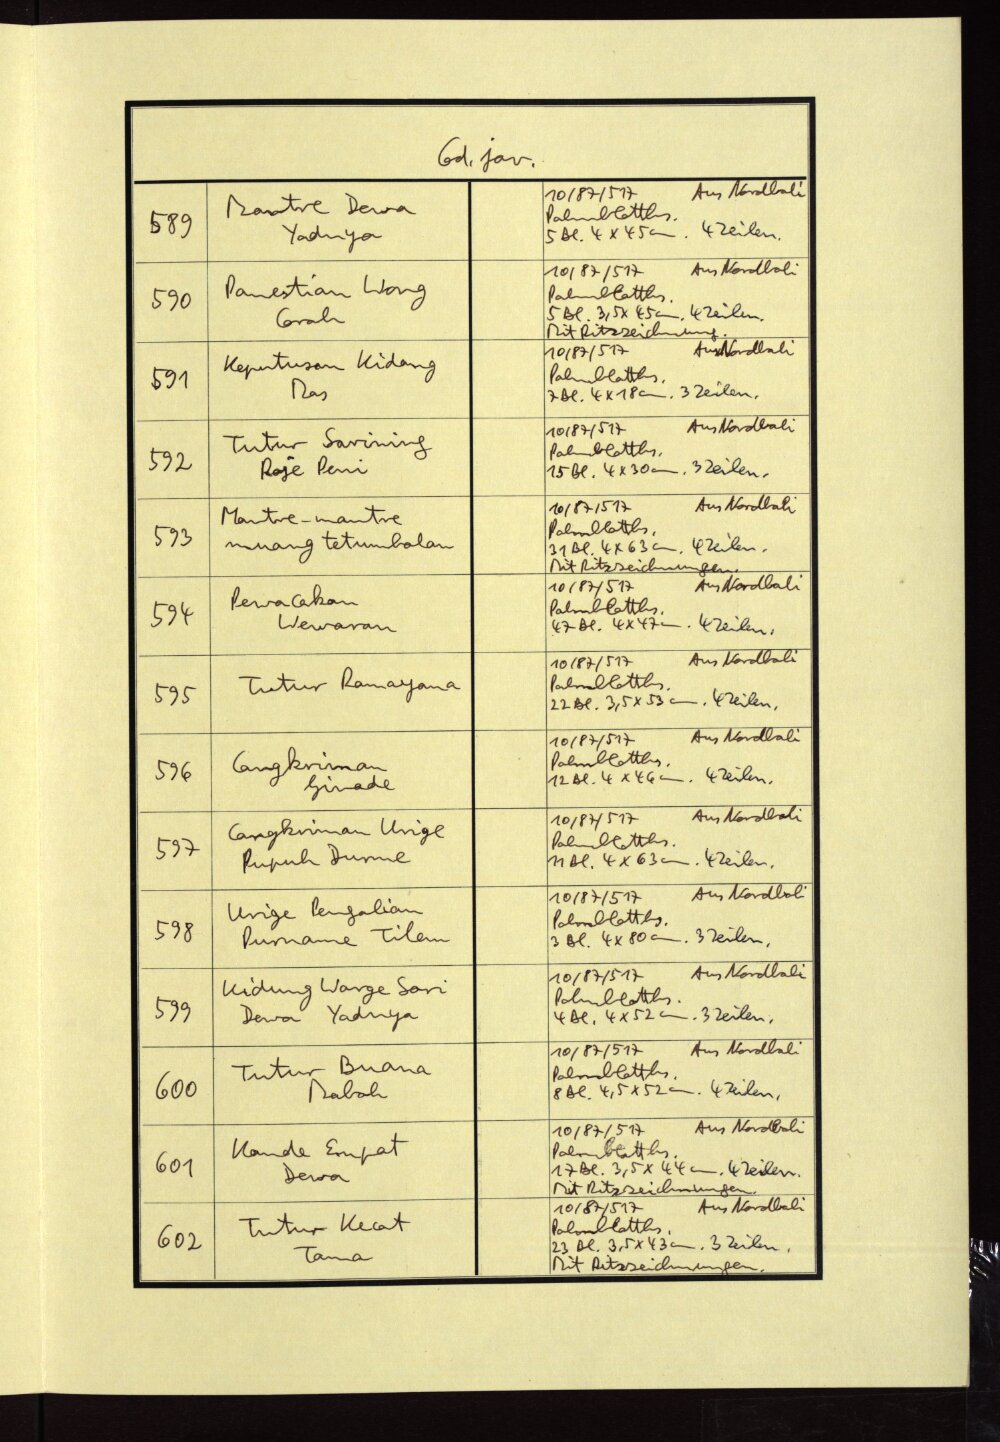 Cod. jav.
589
Mantre Dewa
Yadnya
10/87/517 Aus Nordbali
Palmblatths.
5 Bl. 4 x 45 cm. 4 Zeilen.
590
Panestian Wong
Gerah
10/87/517 Aus Nordbali
Palmblatths.
5 Bl. 3,5 x 45 cm. 4 Zeilen.
Mit Ritzzeichnung.
591
Keputusan Kidang
Mas
10/87/517 Aus Nordbali
Palmblatths.
7 Bl. 4 x 18 cm. 3 Zeilen.
592
Tutur Sarining
Raje Peni
10/87/517 Aus Nordbali
Palmblatths.
15 Bl. 4 x 30 cm. 3 Zeilen.
593
Mantre-mantre
muang tetumbalan
10/87/517 Aus Nordbali
Palmblatths.
31 Bl. 4 x 63 cm. 4 Zeilen.
Mit Ritzzeichnungen.
594
Pewacakan
Wewaran
10/87/517 Aus Nordbali
Palmblatths.
47 Bl. 4 x 47 cm. 4 Zeilen.
595
Tutur Ramayana
10/87/517 Aus Nordbali
Palmblatths.
22 Bl. 3,5 x 53 cm. 4 Zeilen.
596
Cangkriman
Ginade
10/87/517 Aus Nordbali
Palmblatths.
12 Bl. 4 x 46 cm. 4 Zeilen.
597
Cangkriman Urige
Pupuh Durme
10/87/517 Aus Nordbali
Palmblatths.
11 Bl. 4 x 63 cm. 4 Zeilen.
598
Urige Pengalian
Purname Tilem
10/87/517 Aus Nordbali
Palmblatths.
3 Bl. 4 x 80 cm. 3 Zeilen.
599
Kidung Warge Sari
Dewa Yadnya
10/87/517 Aus Nordbali
Palmblatths.
4 Bl. 4 x 52 cm. 3 Zeilen.
600
Tutur Buana
Mabah
10/87/517 Aus Nordbali
Palmblatths.
8 Bl. 4,5 x 52 cm. 4 Zeilen.
601
Kande Empat
Dewa
10/87/517 Aus Nordbali
Palmblatths.
17 Bl. 3,5 x 44 cm. 4 Zeilen.
Mit Ritzzeichnungen.
602
Tutur Kecat
Tama
10/87/517 Aus Nordbali
Palmblatths.
23 Bl. 3,5 x 43 cm. 3 Zeilen.
Mit Ritzzeichnungen.